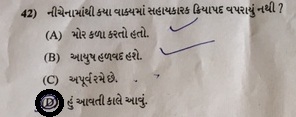 42) નીચેનામાંથી ક્યા વાક્યમાં સહાયકારક ક્રિયાપદ વપરાયું નથી ?
(A) મોર કળા કરતો હતો.
(B) આયુષ હળવદ હશે.
(C) અપૂર્વ રમે છે.
(D) હું આવતી કાલે આવું.